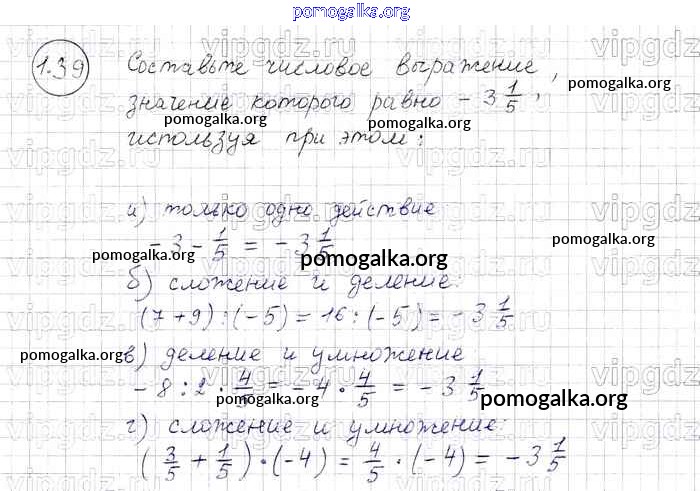 pomogalka.org
1.39 Составьте числовое выражение,
pomogalka.org
значение которого равно - 3 1/5,
pomogalka.org pomogalka.org
используя при этом:
а) только одно действие
- 3 - 1/5 = - 3 1/5
pomogalka.org pomogalka.org pomogalka.org
б) сложение и деление:
(7 + 9) : (- 5) = 16 : (- 5) = - 3 1/5
pomogalka.org
в) деление и умножение
- 8 : 2 · 4/5 = - 4 · 4/5 = - 3 1/5
pomogalka.org pomogalka.org
г) сложение и умножение:
(3/5 + 1/5) · (- 4) = 4/5 · (- 4) = - 3 1/5
vipgdz.ru